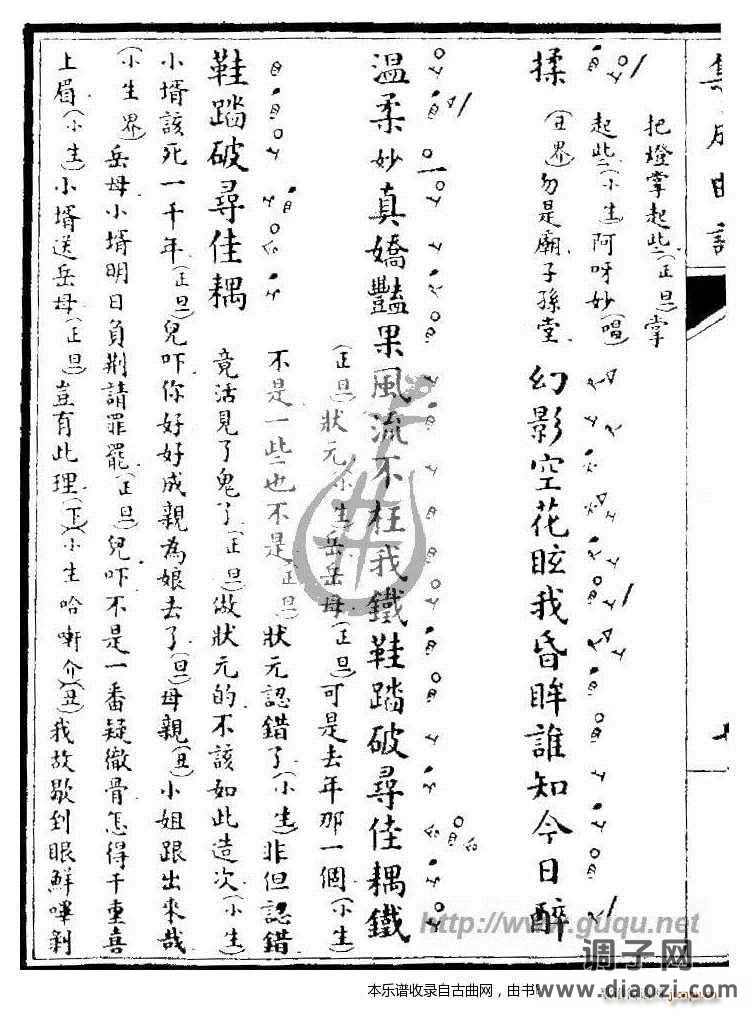 集成曲譜
把燈掌起些(正旦)掌
揉 起些(小生)阿呀妙(唱)
(丑界)勿是廟子孫堂 幻影空花眩我昏眸誰知今日醉
溫柔妙真嬌豔果風流不枉我鐵鞋踏破尋佳耦鐵
(正旦)狀元(小生)岳岳母(正旦)可是去年那一個(小生)
不是一些也不是(正旦)狀元認錯了(小生)非但認錯
鞋踏破尋佳耦 竟活見了鬼了(正旦)做狀元的不該如此造次(小生)
小壻該死一千年(正旦)兒吓你好好成親為娘去了(旦)母親(丑)小姐跟出來哉
(小生界)岳母小壻明日負荆請罪罷(正旦)兒吓不是一番疑徹骨怎得千重喜
上眉(小生)小壻送岳母(正旦)豈有此理(下)(小生哈嘶介)(丑)我故歇到眼鮮嗶剝
http://www.guqu.net
调子网
www.diaozi.com
本乐谱收录自古曲网，由书